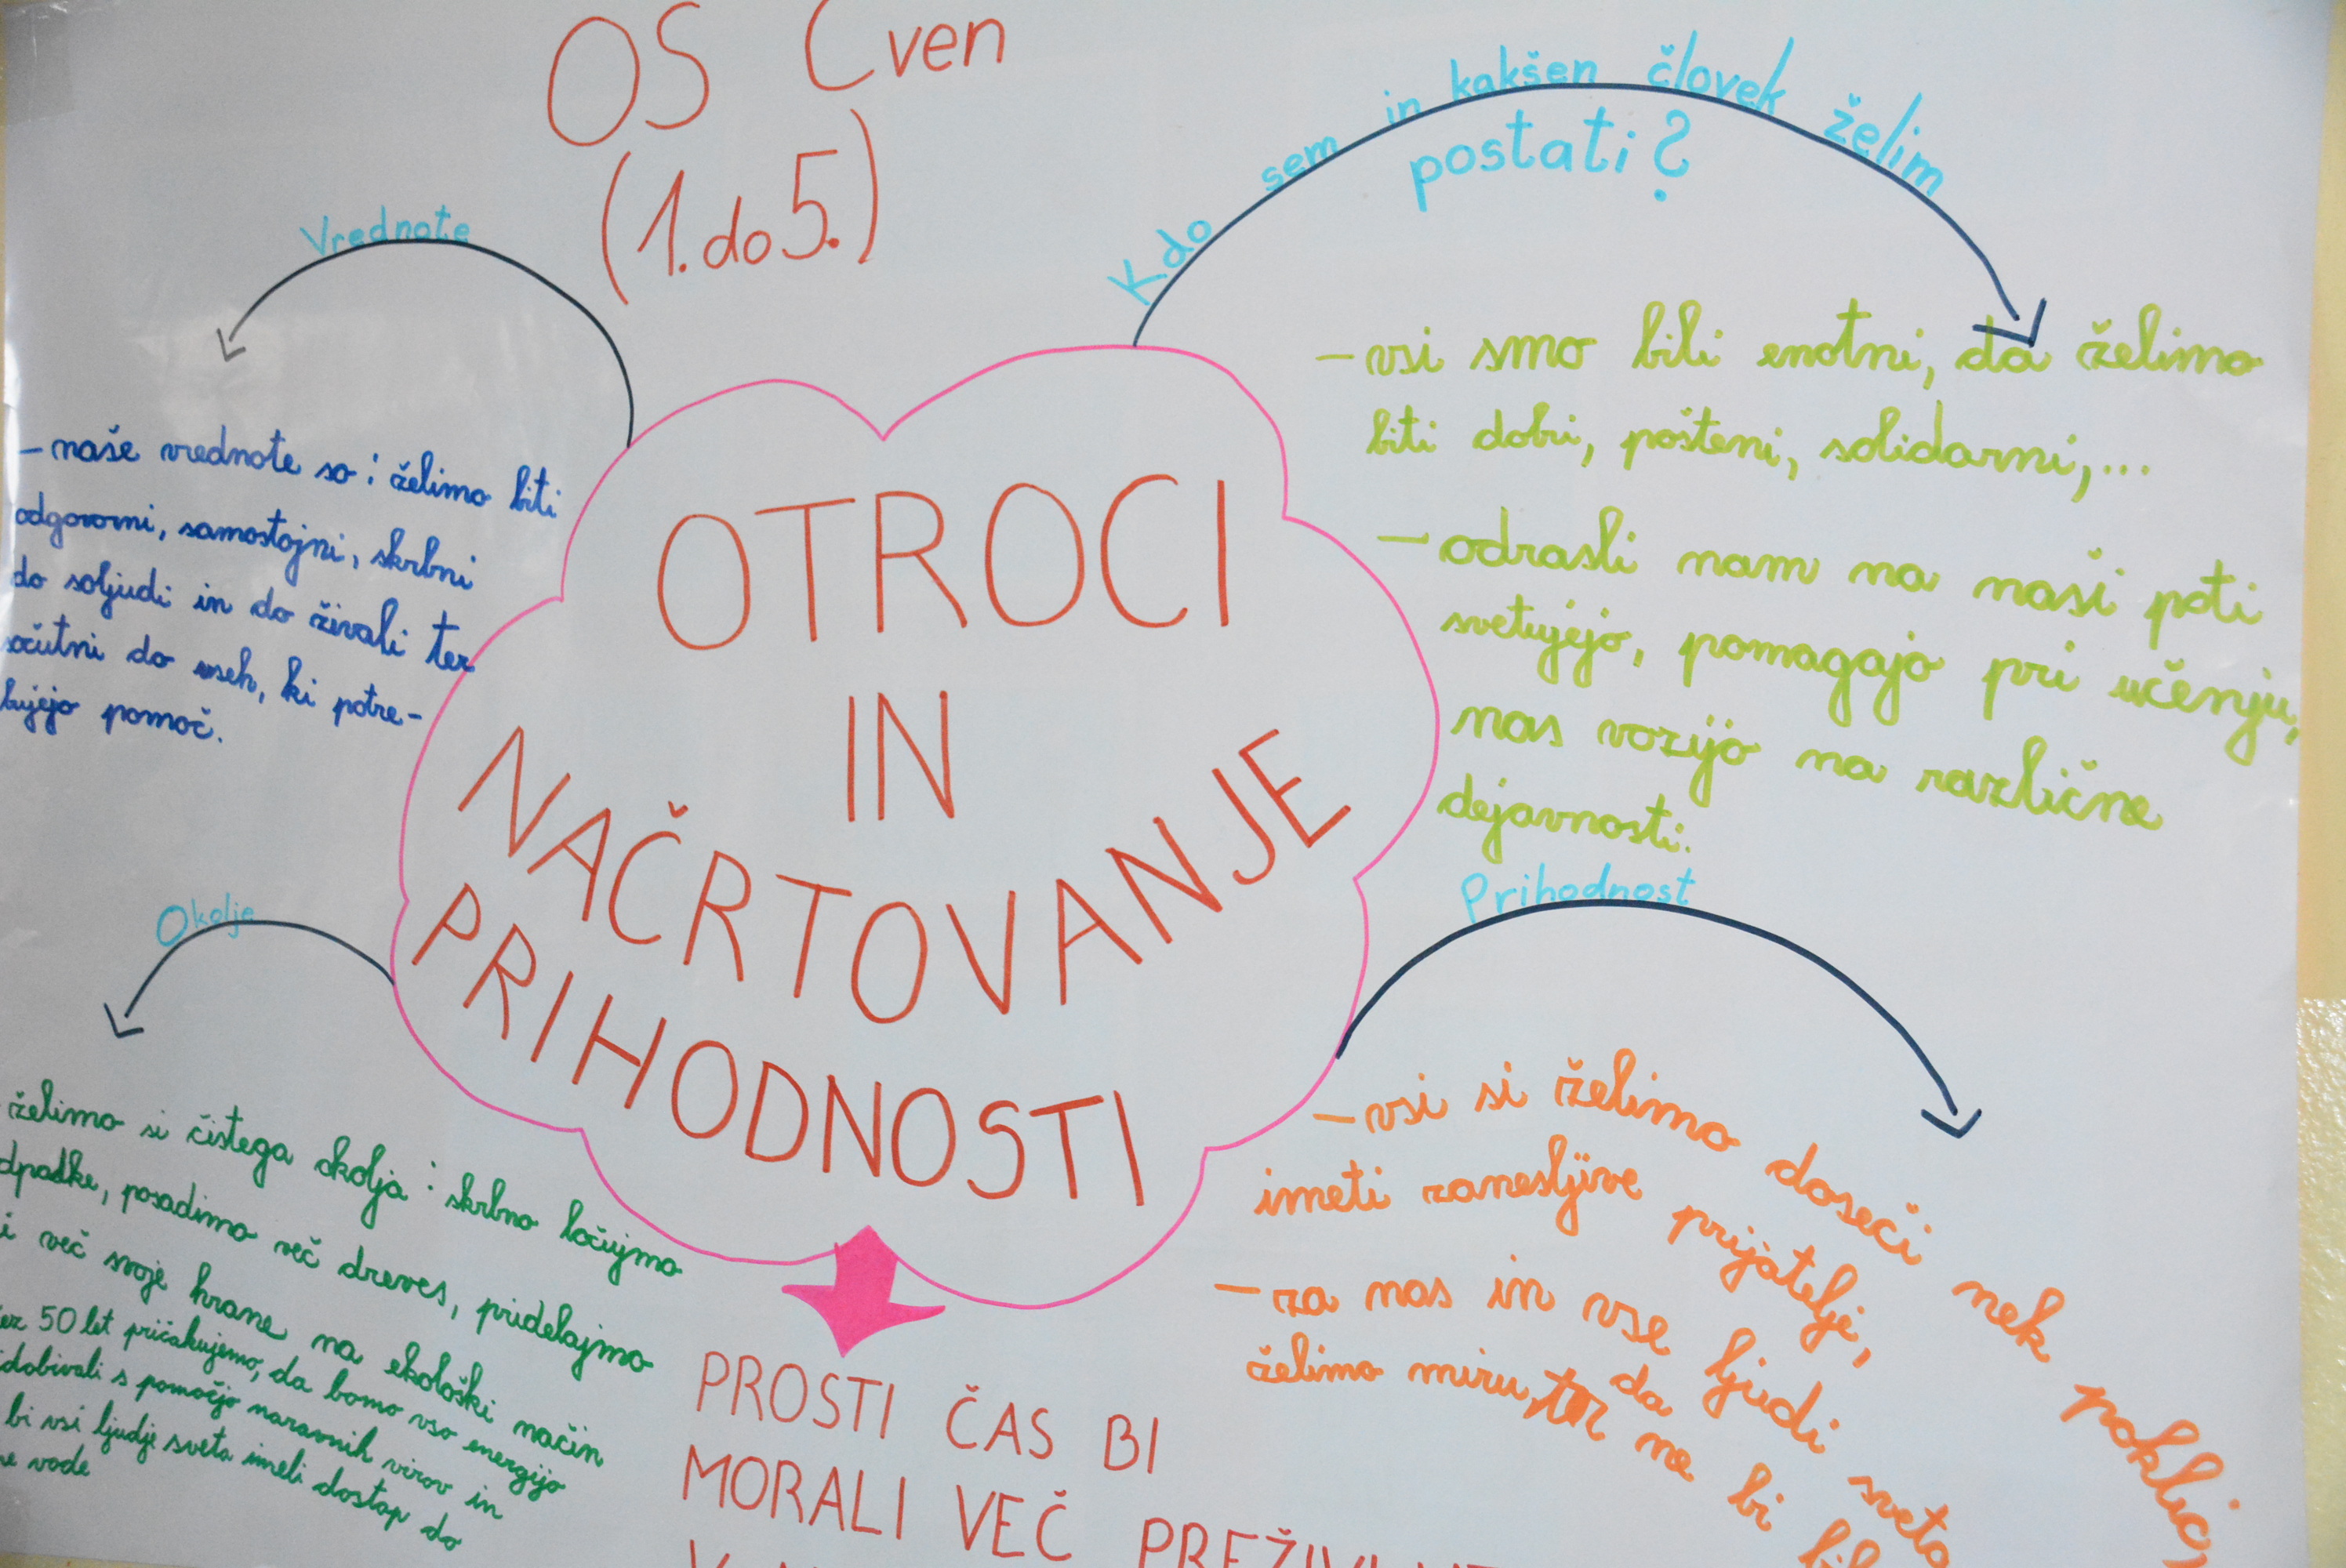 OŠ Cven
(1. do 5.)
Vrednote
- naše vrednote so: želimo biti
odgovorni, samostojni, skrbni
do soljudi in do živali ter
sočutni do vseh, ki potre-
bujejo pomoč.
Kdo sem in kakšen človek želim
postati?
- vsi smo bili enotni, da želimo
biti dobri, pošteni, solidarni,...
- odrasli nam na naši poti
svetujejo, pomagajo pri učenju,
nas vozijo na različne
dejavnosti.
OTROCI
IN
NAČRTOVANJE
PRIHODNOSTI
Okolje
želimo si čistega okolja: skrbno ločujmo
dpadke, posadimo več dreves, pridelajmo
i več svoje hrane na ekološki način
ez 50 let pričakujemo, da bomo vso energijo
idobivali s pomočjo naravnih virov in
bi vsi ljudje sveta imeli dostop do
e vode
Prihodnost
- vsi si želimo doseči nek poklic,
imeti zanesljive prijatelje,
- za nas in vse ljudi sveta
želimo miru, ter da ne bi bil
PROSTI ČAS BI
MORALI VEČ